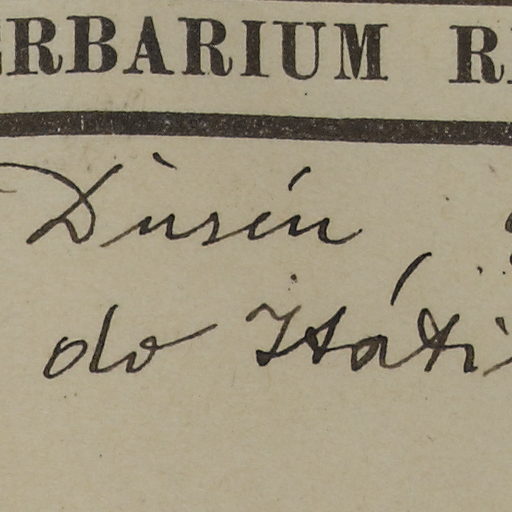 ERBARIUM R
Dusén,
do Itáti